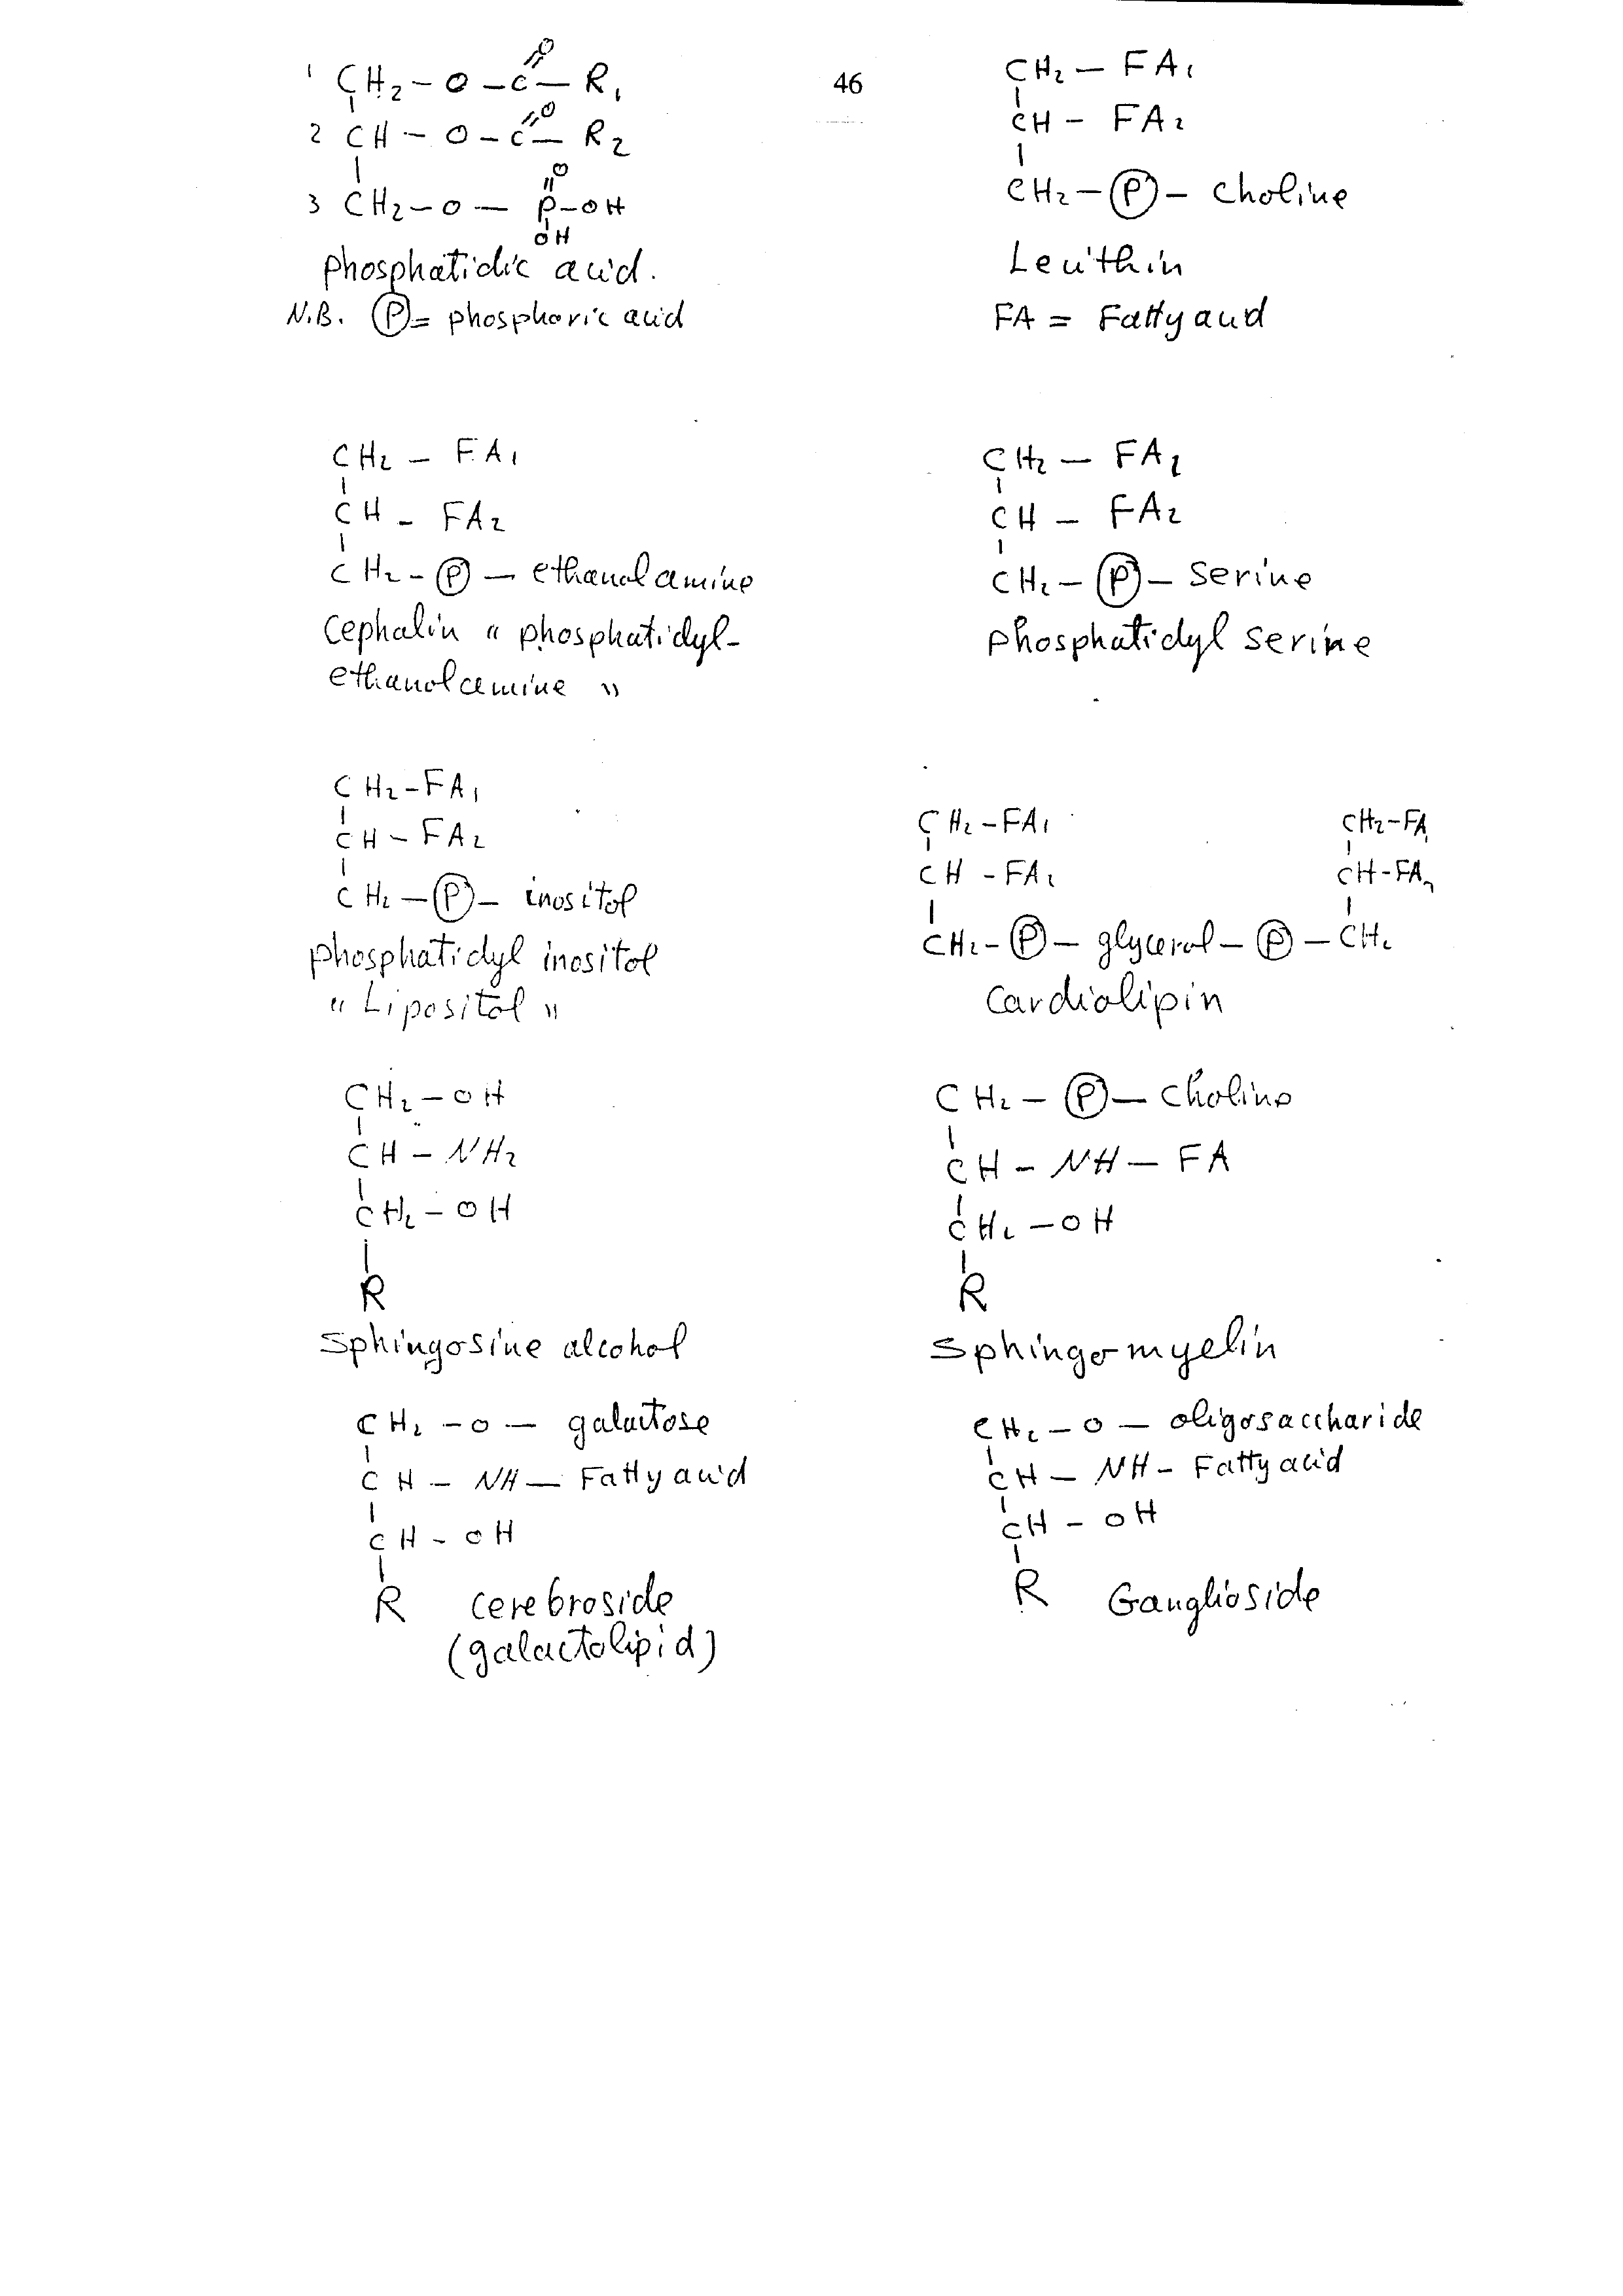 46
1 CH2 – O – C – R1
O
2 CH – O – C – R2
O
3 CH2 – O – P – OH
O
OH
phosphatidic acid.
N.B. Ⓟ = phosphoric acid
CH2 – FA1
CH – FA2
CH2 – Ⓟ – choline
Lecithin
FA = Fatty acid
CH2 – FA1
CH – FA2
CH2 – Ⓟ – ethanolamine
Cephalin " phosphatidyl-
ethanolamine "
CH2 – FA1
CH – FA2
CH2 – Ⓟ – serine
phosphatidyl serine
CH2 – FA1
CH – FA2
CH2 – Ⓟ – inositol
phosphatidyl inositol
" Lipositol "
CH2 – FA1 CH2 – FA1
CH – FA2 CH – FA2
CH2 – Ⓟ – glycerol – Ⓟ – CH2
Cardiolipin
CH2 – OH
CH – NH2
CH2 – OH
R
Sphingosine alcohol
CH2 – Ⓟ – choline
CH – NH – FA
CH2 – OH
R
Sphingomyelin
CH2 – O – galactose
CH – NH – Fatty acid
CH – OH
R cerebroside
(galactolipid)
CH2 – O – oligosaccharide
CH – NH – Fatty acid
CH – OH
R Ganglioside